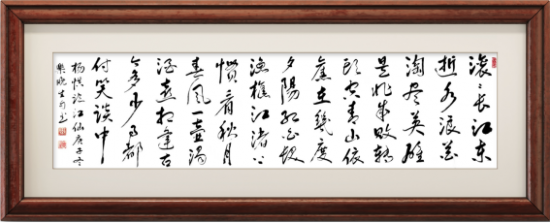 滚滚长江东
逝水浪花
淘尽英雄
是非成败转
头空青山依
舊在幾度
夕陽红白发
渔樵江渚上
惯看秋月
春风一壶濁
酒喜相逢古
今多少事都
付笑谈中
杨慎临江仙庚子冬